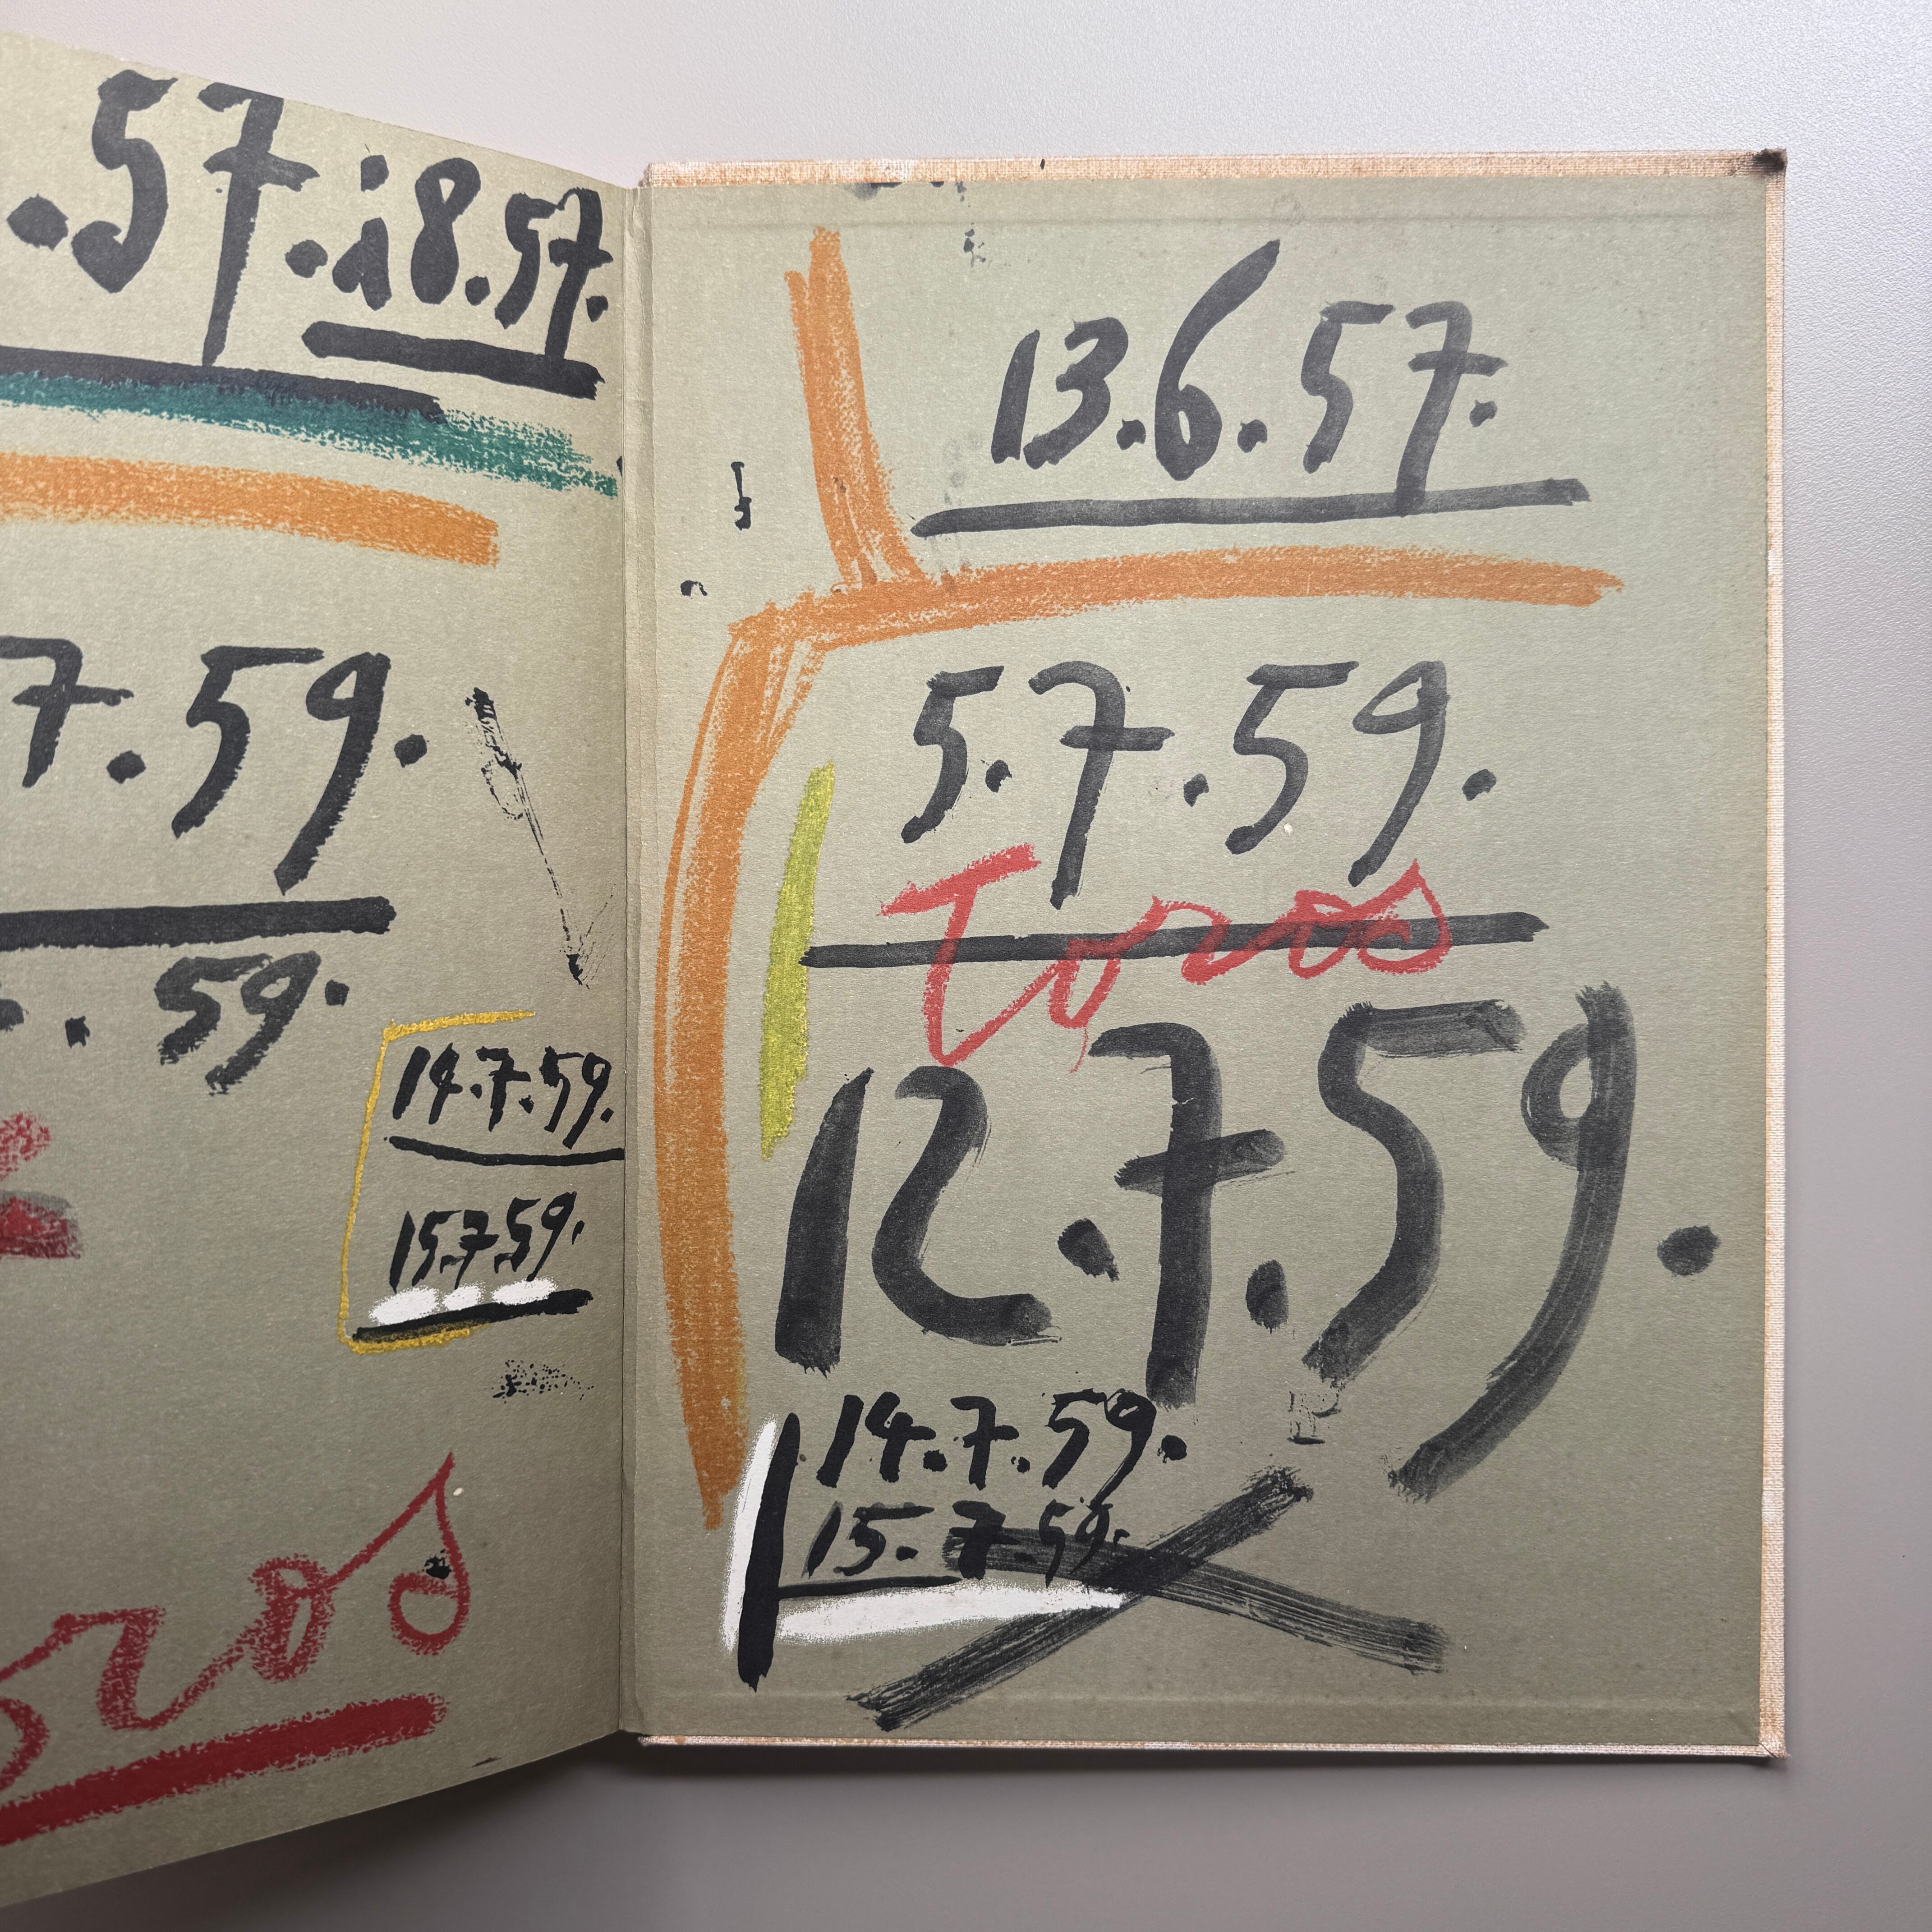 .57.18.57.
7.59.
.59.
14.7.59.
15.7.59.
ros
13.6.57.
5.7.59.
Toros
12.7.59.
14.7.59.
15.7.59.